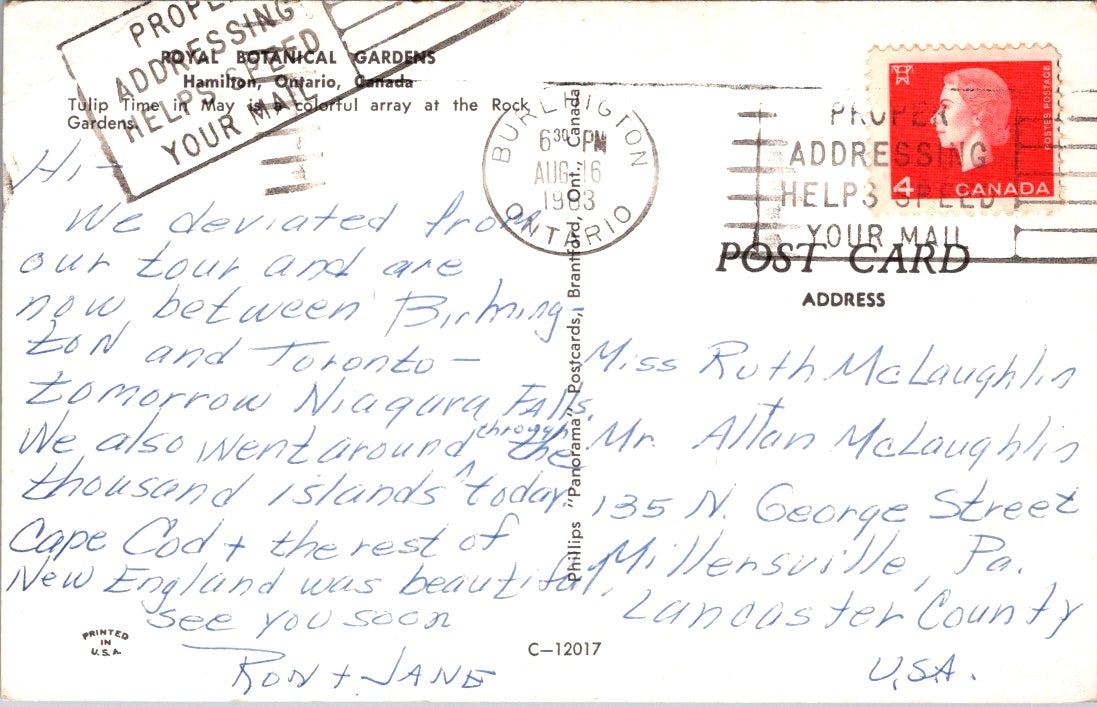 PROPER
ADDRESSING
HELPS SPEED
YOUR MAIL
ROYAL BOTANICAL GARDENS
Hamilton, Ontario, Canada
Tulip Time in May is a colorful array at the Rock
Gardens.
BURLINGTON
6 30 PM
AUG 16
1963
ONTARIO
PROPER
ADDRESSING
HELPS SPEED
YOUR MAIL
POSTES POSTAGE
4 CANADA
POST CARD
ADDRESS
Hi-
We deviated from
our tour and are
now between Birming-
ton and Toronto-
tomorrow Niagara Falls.
We also went around through the
thousand islands today.
Cape Cod + the rest of
New England was beautiful.
see you soon
Ron + Jane
Phillips "Panorama" Postcards, Brantford, Ont., Canada
Miss Ruth McLaughlin
+
Mr. Allan McLaughlin
135 N. George Street
Millersville, Pa.
Lancaster County
U.S.A.
PRINTED
IN
U.S.A.
C-12017